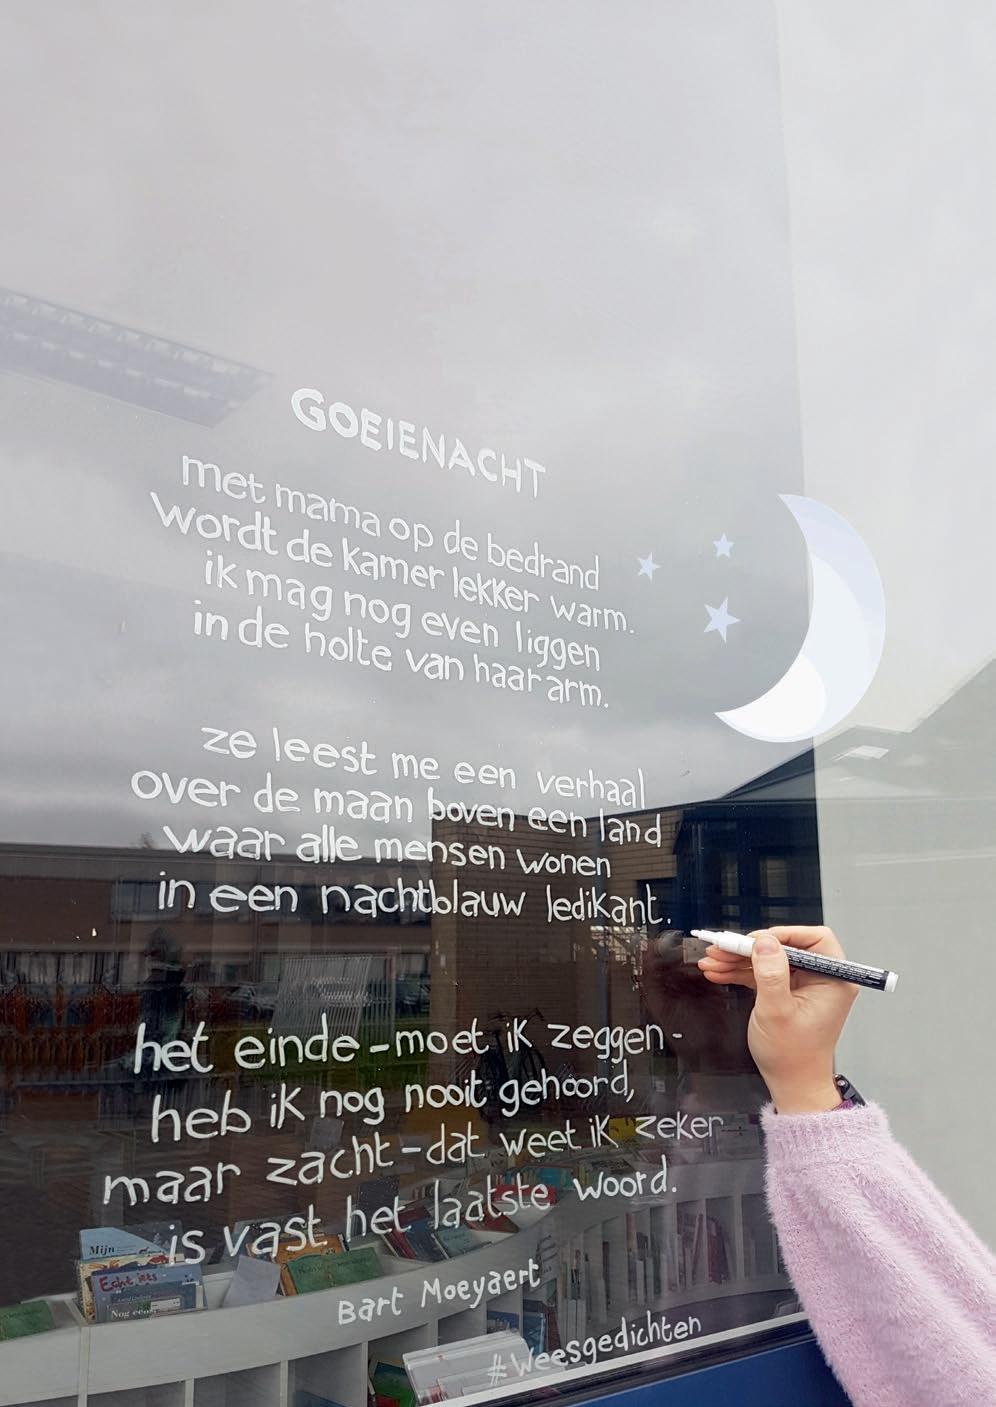 GOEIENACHT
met mama op de bedrand
wordt de kamer lekker warm.
ik mag nog even liggen
in de holte van haar arm.
ze leest me een verhaal
over de maan boven een land
waar alle mensen wonen
in een nachtblauw ledikant.
het einde - moet ik zeggen -
heb ik nog nooit gehoord,
maar zacht - dat weet ik zeker
is vast het laatste woord.
Bart Moeyaert
#Weesgedichten
Mijn
Echt iets
Nog een